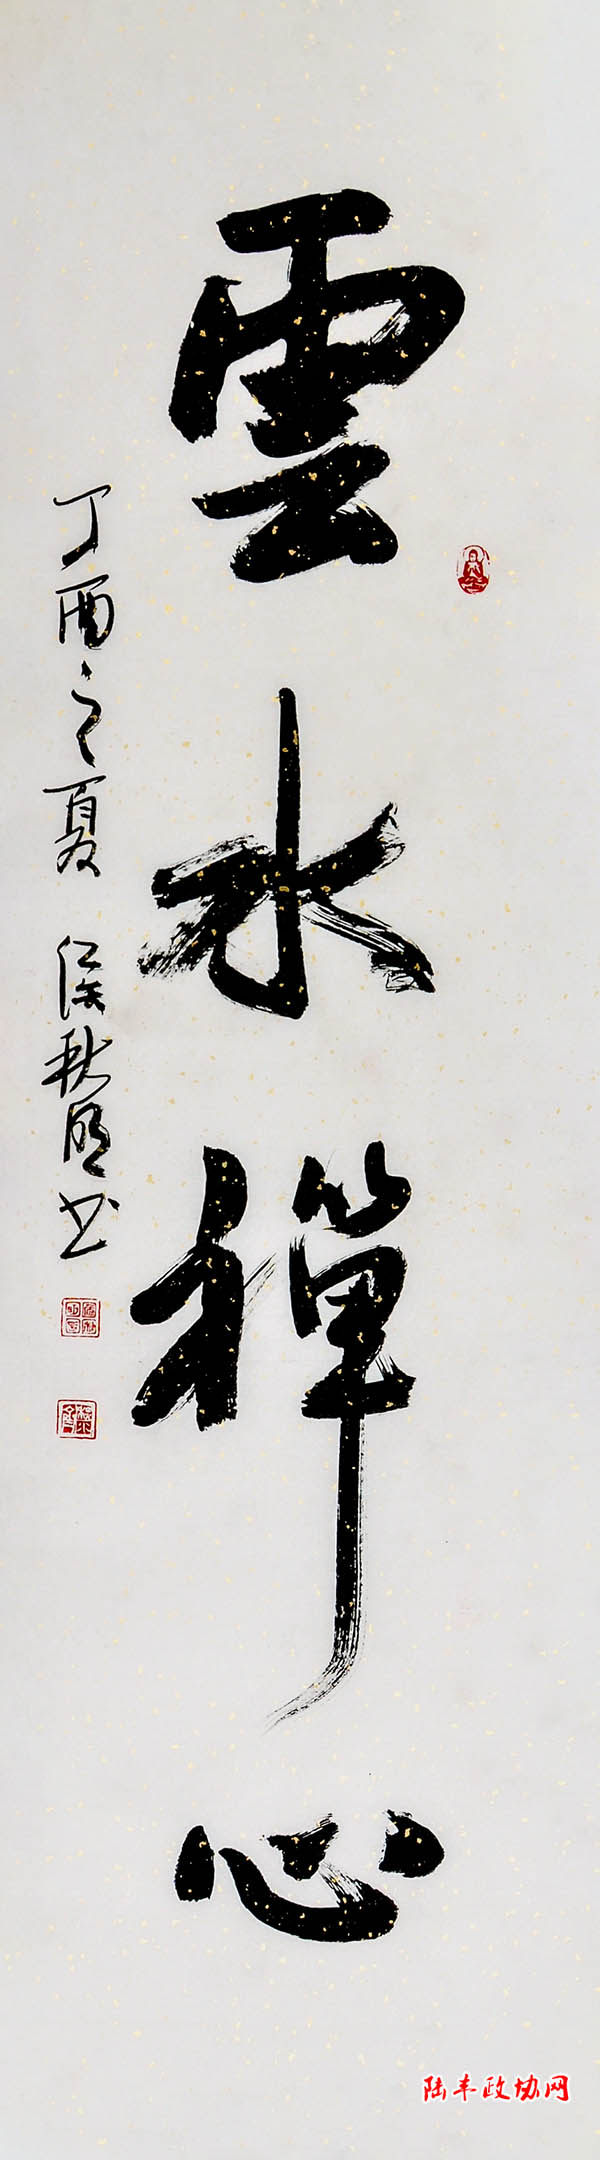 雲水禪心
丁酉之夏 秋明书
陆丰政协网